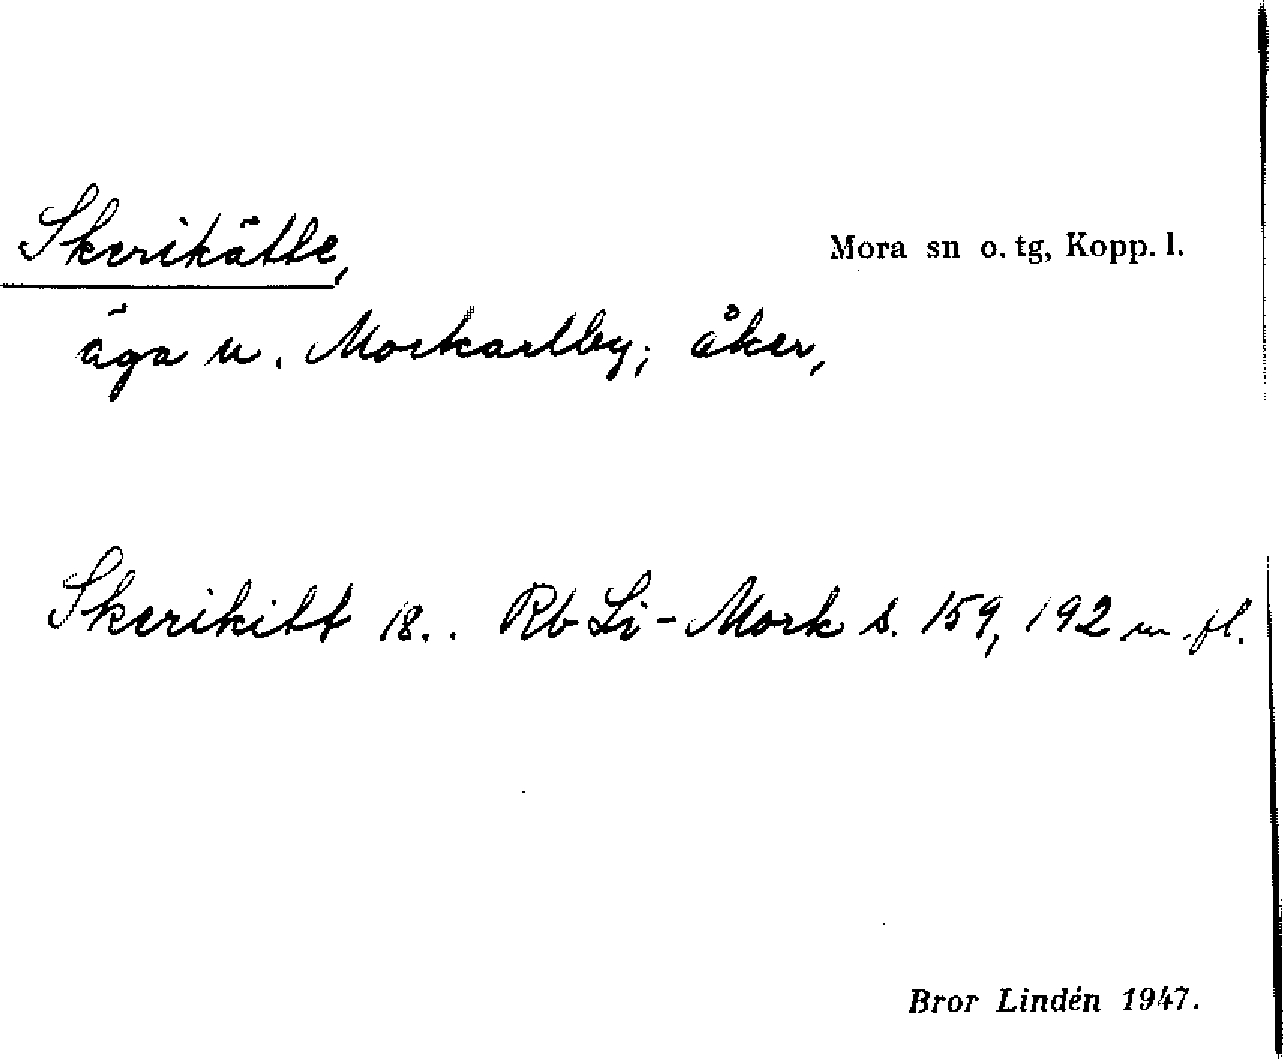 Skerikätte, Mora sn o. tg, Kopp. l.
äga u. Morkarlby; åker,
Skerikitt 18.. Rb Li-Mork s. 159, 192 m. fl.
Bror Lindén 1947.